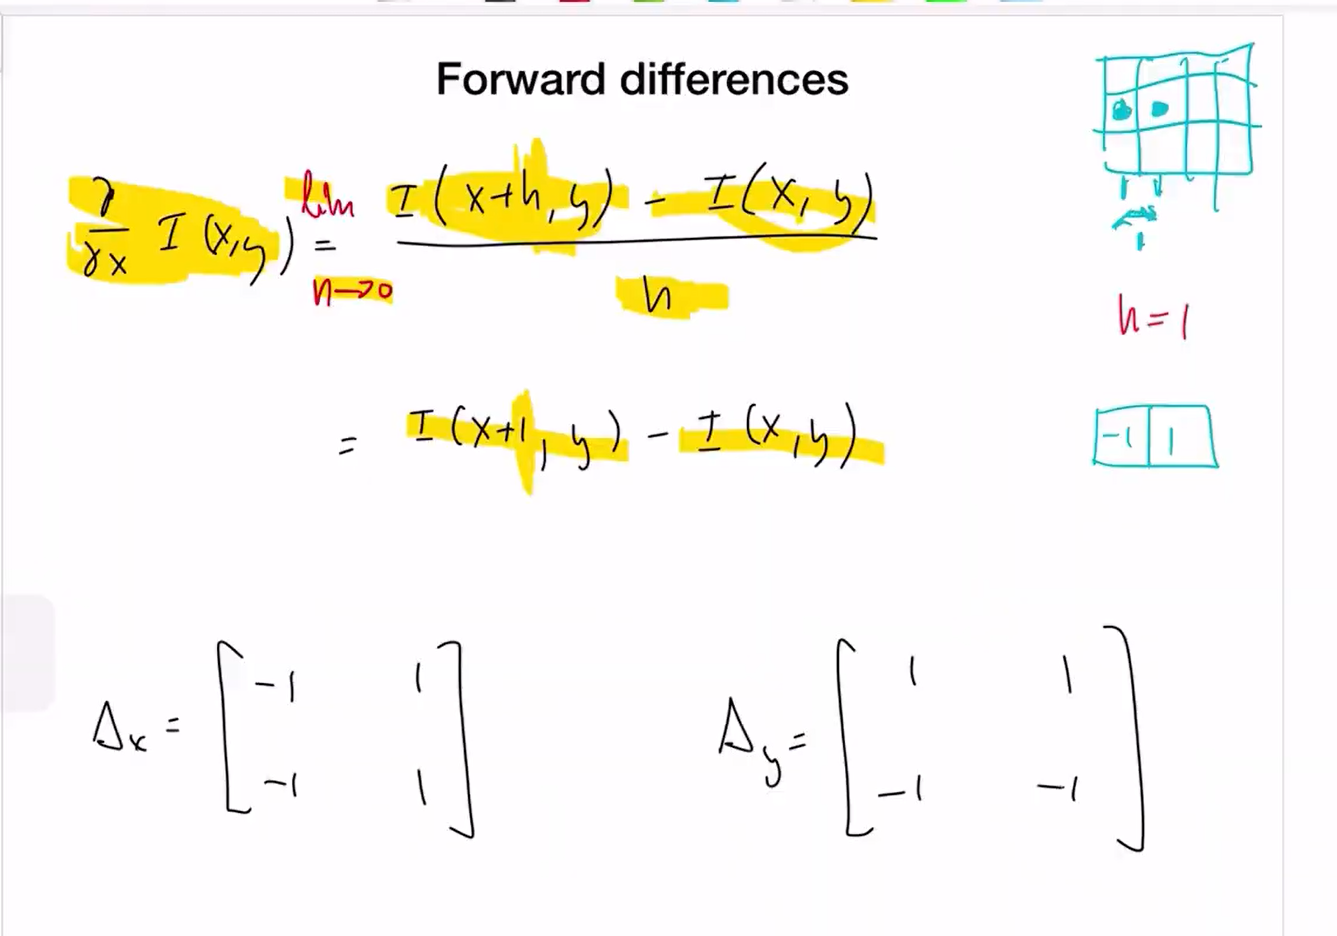 Forward differences
∂/∂x I(x,y) = lim h→0 (I(x+h, y) - I(x, y)) / h
h = 1
= I(x+1, y) - I(x, y)
-1 | 1
Δx = [ -1 1
-1 1 ]
Δy = [ 1 1
-1 -1 ]